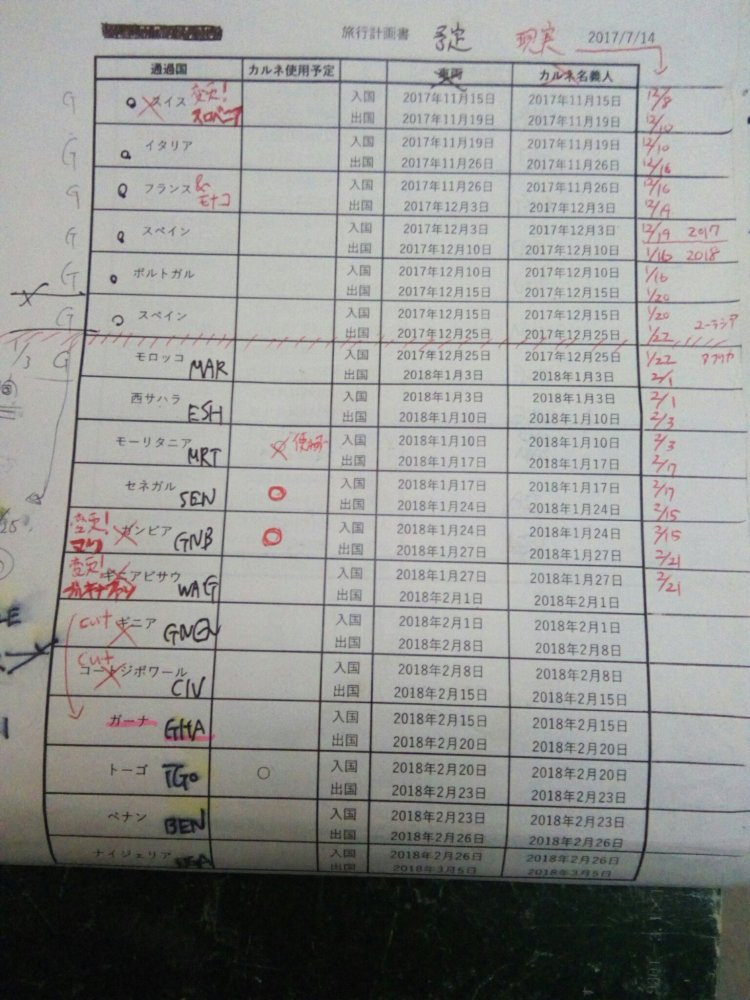 旅行計画書 予定 現実 2017/7/14
通過国 カルネ使用予定 車両 カルネ名義人
G スイス 変更！ スロベニア 入国 2017年11月15日 2017年11月15日 12/8
出国 2017年11月19日 2017年11月19日 12/10
G イタリア 入国 2017年11月19日 2017年11月19日 12/10
出国 2017年11月26日 2017年11月26日 12/16
G フランス & モナコ 入国 2017年11月26日 2017年11月26日 12/16
出国 2017年12月3日 2017年12月3日 12/19
G スペイン 入国 2017年12月3日 2017年12月3日 12/19 2017
出国 2017年12月10日 2017年12月10日 1/16 2018
G ポルトガル 入国 2017年12月10日 2017年12月10日 1/16
出国 2017年12月15日 2017年12月15日 1/20
G スペイン 入国 2017年12月15日 2017年12月15日 1/20
出国 2017年12月25日 2017年12月25日 1/22 ユーラシア
1/3 G モロッコ MAR 入国 2017年12月25日 2017年12月25日 1/22 アフリカ
出国 2018年1月3日 2018年1月3日 2/1
西サハラ ESH 入国 2018年1月3日 2018年1月3日 2/1
出国 2018年1月10日 2018年1月10日 2/3
モーリタニア MRT 入国 2018年1月10日 2018年1月10日 2/3
出国 2018年1月17日 2018年1月17日 2/17
セネガル SEN 入国 2018年1月17日 2018年1月17日 2/17
出国 2018年1月24日 2018年1月24日 2/15
変更！ マリ ガンビア GNB 入国 2018年1月24日 2018年1月24日 2/15
出国 2018年1月27日 2018年1月27日 2/21
変更！ ブルキナファソ ギニアビサウ WAG 入国 2018年1月27日 2018年1月27日 2/21
出国 2018年2月1日 2018年2月1日
cut ギニア 入国 2018年2月1日 2018年2月1日
出国 2018年2月8日 2018年2月8日
cut コートジボワール CIV 入国 2018年2月8日 2018年2月8日
出国 2018年2月15日 2018年2月15日
ガーナ GHA 入国 2018年2月15日 2018年2月15日
出国 2018年2月20日 2018年2月20日
トーゴ TGo ○ 入国 2018年2月20日 2018年2月20日
出国 2018年2月23日 2018年2月23日
ベナン BEN 入国 2018年2月23日 2018年2月23日
出国 2018年2月26日 2018年2月26日
ナイジェリア 入国 2018年2月26日 2018年2月26日
出国 2018年3月5日 2018年3月5日